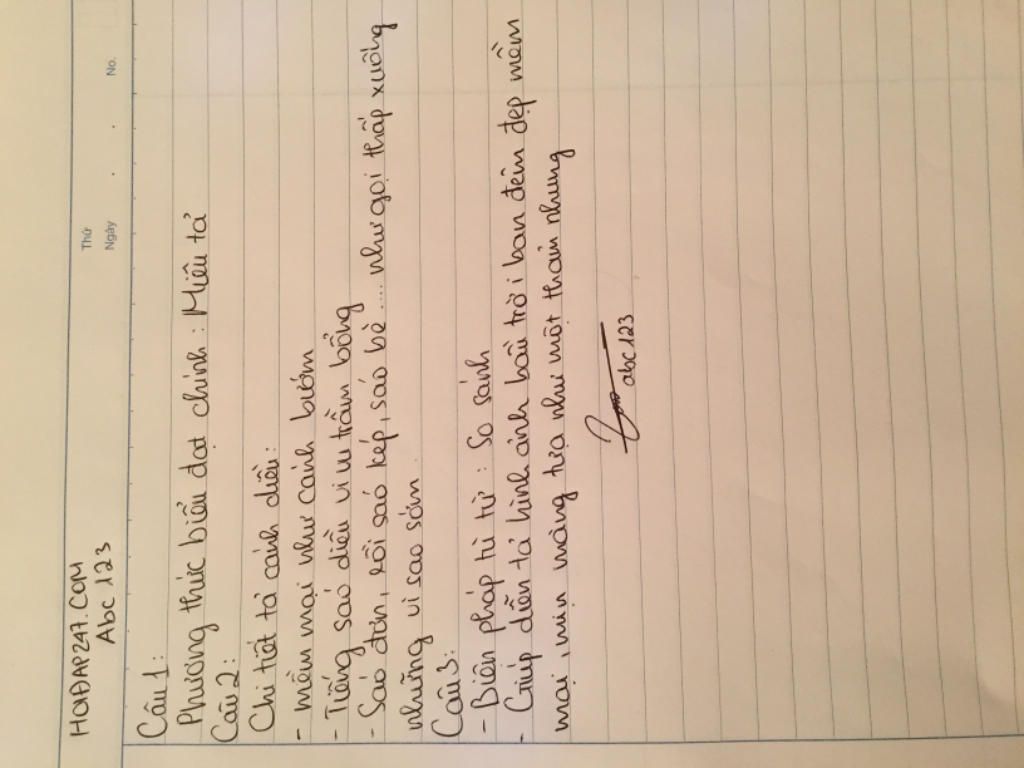 HOIĐAP247.COM
Abc 123
Thứ
Ngày . .
No.
Câu 1:
Phương thức biểu đạt chính: Miêu tả
Câu 2:
Chi tiết tả cánh diều:
- mềm mại như cánh bướm
- Tiếng sáo diều vi vu trầm bổng
- Sáo đơn, rồi sáo kép, sáo bè .... như gọi thấp xuống
những vì sao sớm.
Câu 3:
- Biện pháp tu từ: So sánh
- Giúp diễn tả hình ảnh bầu trời ban đêm đẹp mềm
mại, mịn màng tựa như một thảm nhung
abc123